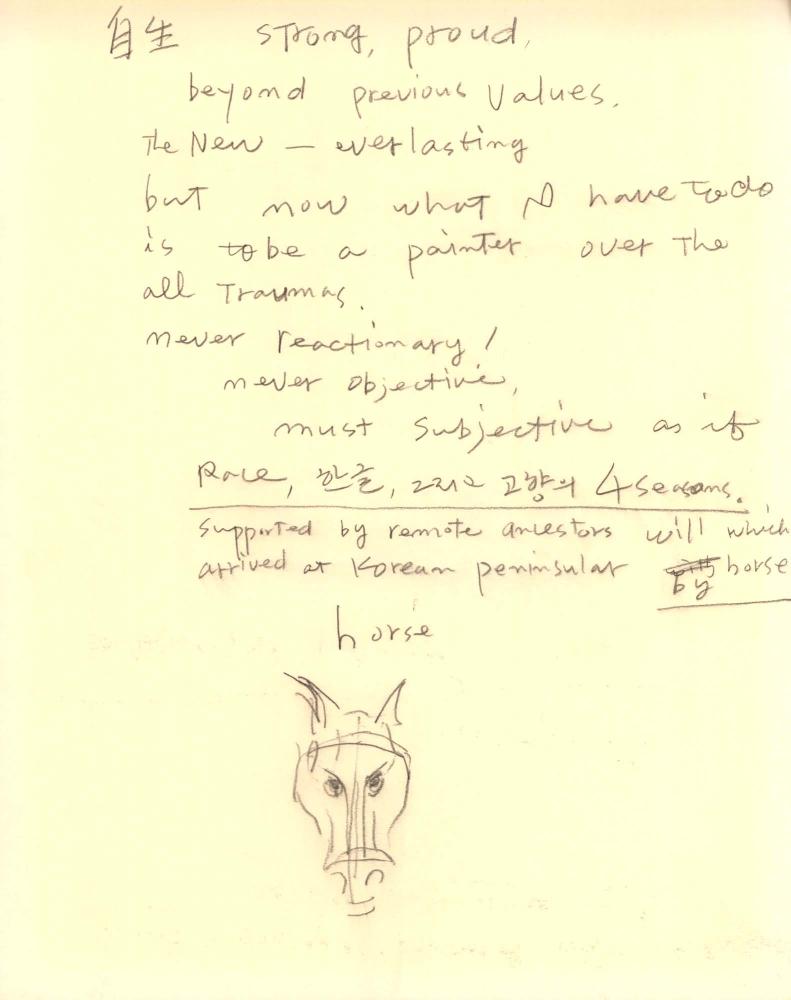 自生 strong, proud,
beyond previous values.
The New — everlasting
but now what I have to do
is to be a painter over the
all Traumas.
never reactionary!
never objective,
must subjective as if
Race, 한글, 그리고 고향의 4 seasons.
supported by remote ancestors will which
arrived at Korean peninsular with by horse
horse